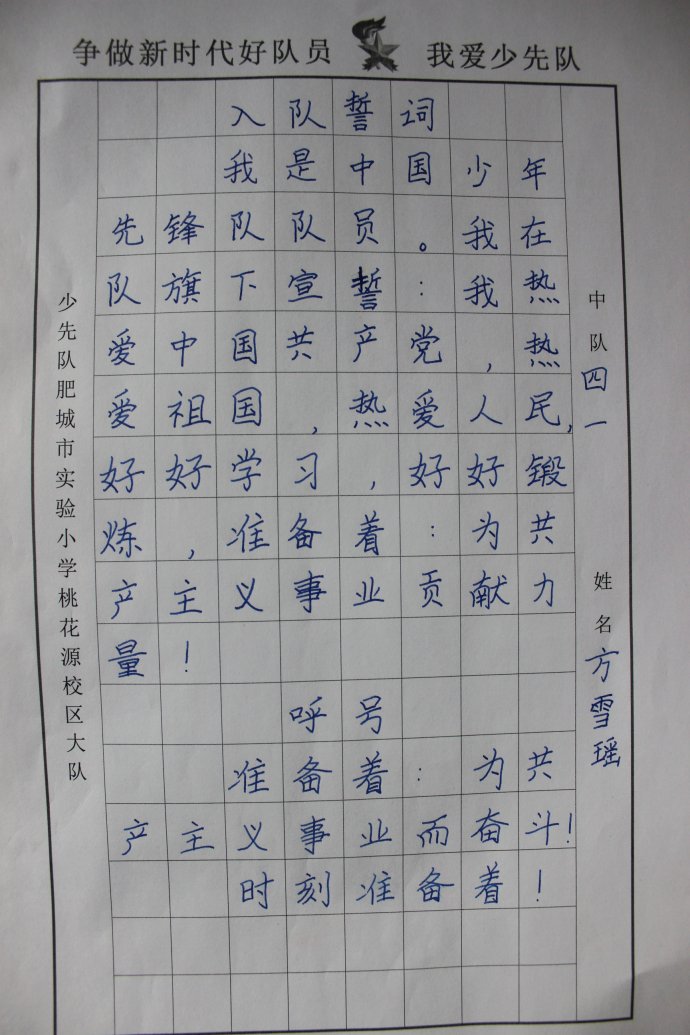 争做新时代好队员 我爱少先队
入队誓词
我是中国少年
先锋队队员。我在
队旗下宣誓:我热
爱中国共产党,热
爱祖国,热爱人民,
好好学习,好好锻
炼,准备着:为共
产主义事业贡献力
量!
呼号
准备着:为共
产主义事业而奋斗!
时刻准备着!
少先队肥城市实验小学桃花源校区大队
中队四一
姓名方雪瑶